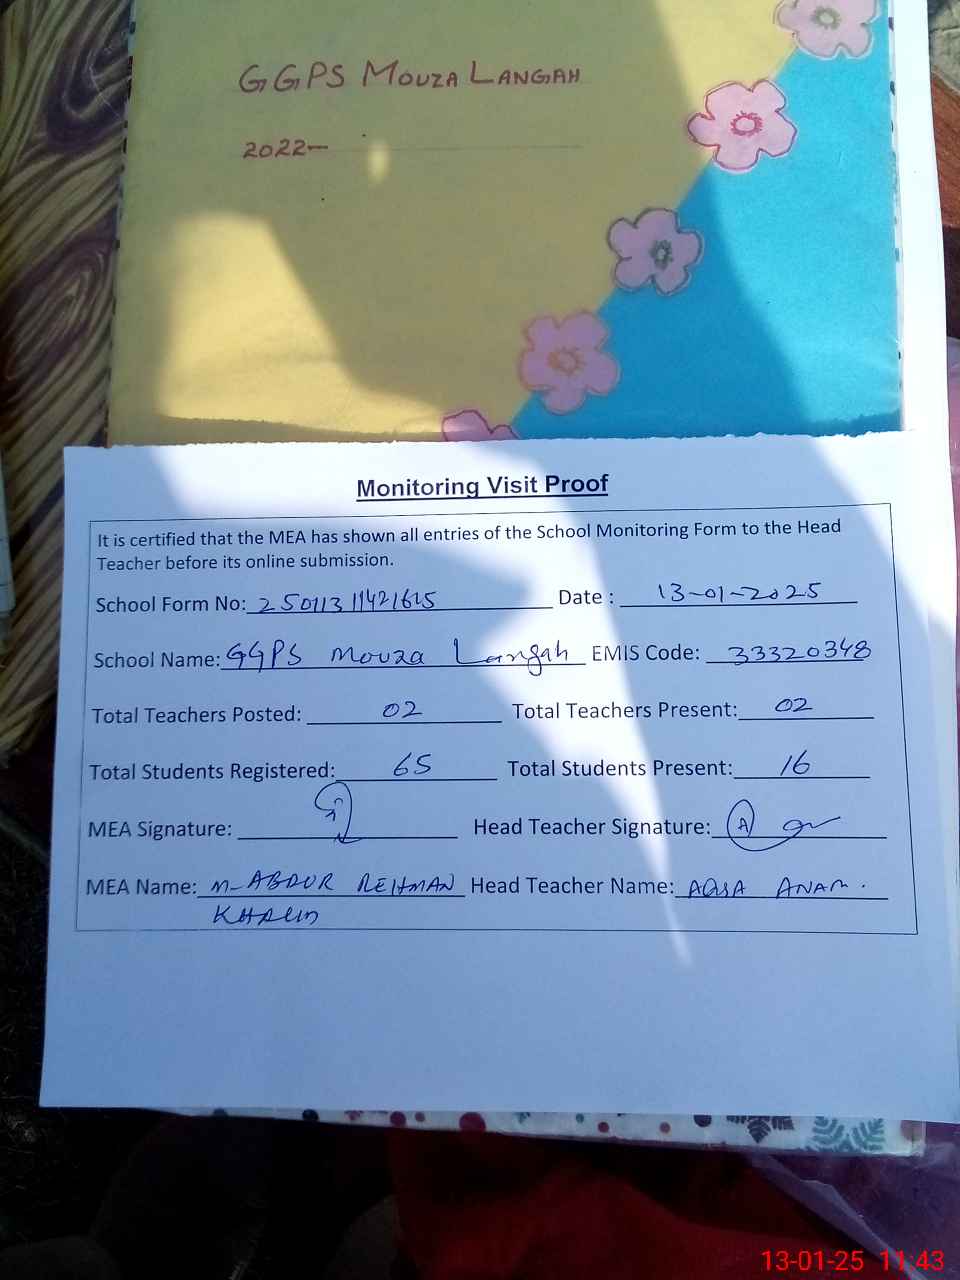 GGPS MOUZA LANGAH
2022—
Monitoring Visit Proof
It is certified that the MEA has shown all entries of the School Monitoring Form to the Head
Teacher before its online submission.
School Form No: Date : 13-01-2025
School Name: GGPS Mouza Langah EMIS Code: 33320348
Total Teachers Posted: 02 Total Teachers Present: 02
Total Students Registered: 65 Total Students Present: 16
MEA Signature: Head Teacher Signature:
MEA Name: M-ABDUR REHMAN Head Teacher Name: AQSA ANAM.
13-01-25 11:43